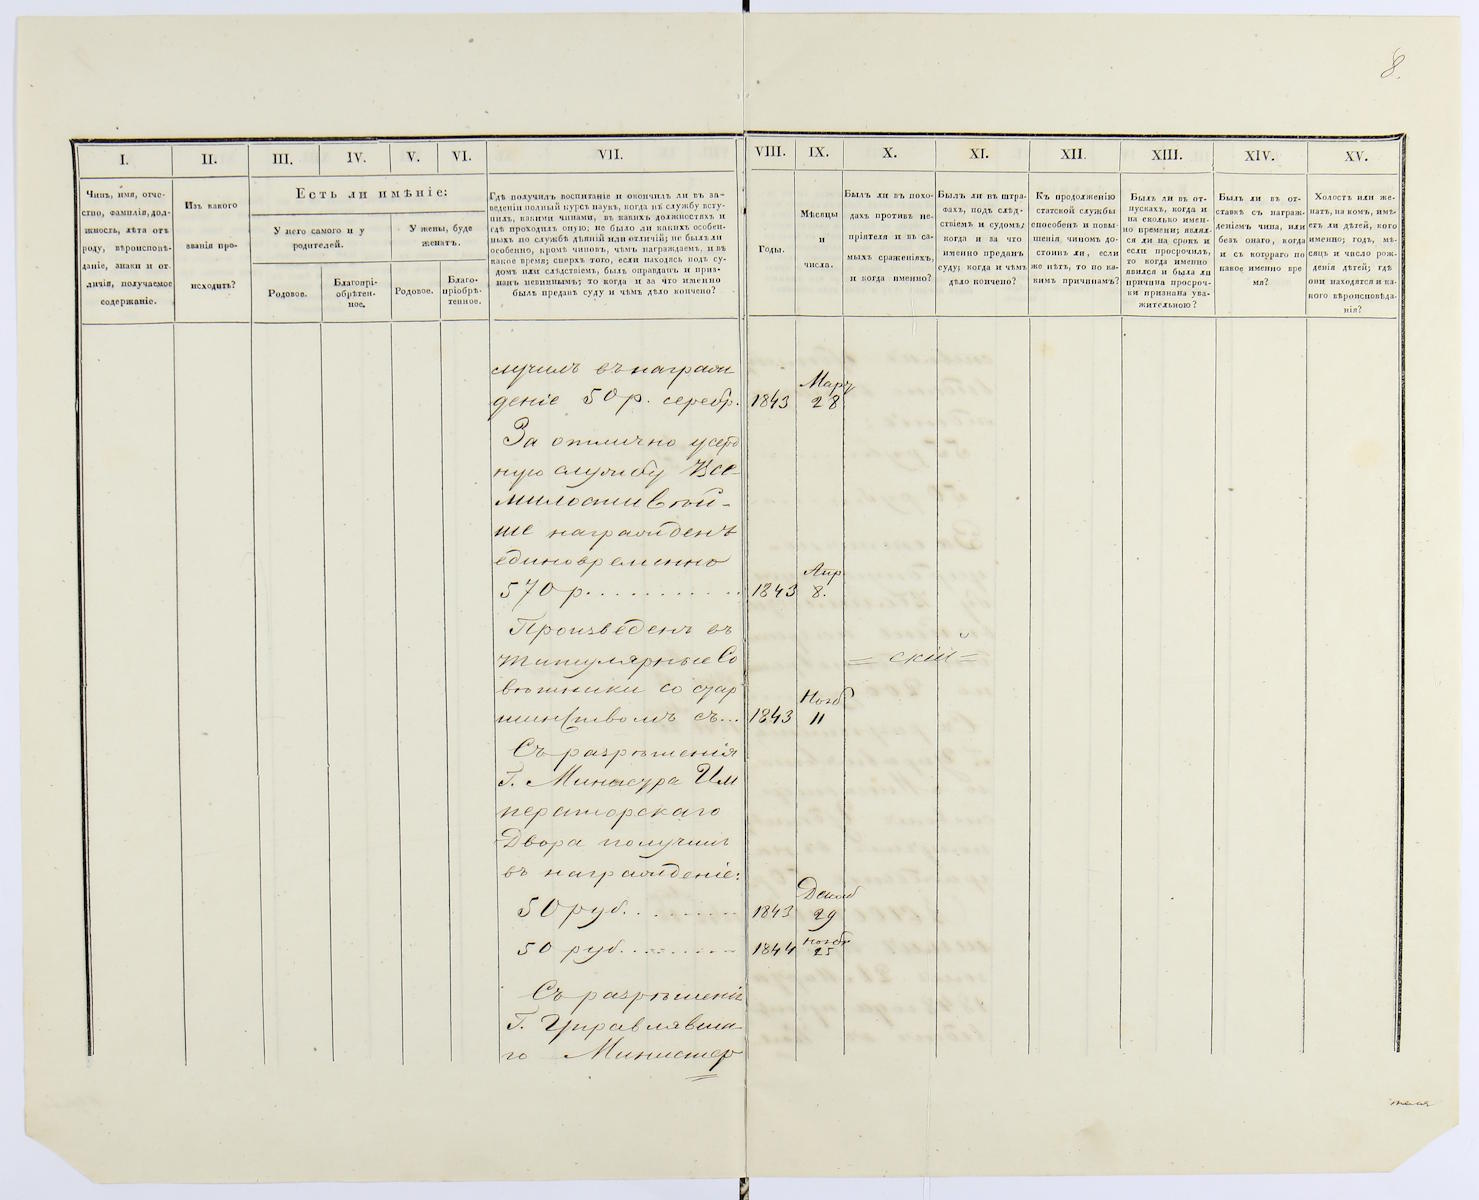 8.
I. II. III. IV. V. VI. VII. VIII. IX. X. XI. XII. XIII. XIV. XV.
Чинъ, имя, отче-
ство, фамилія, дол-
жность, лѣта отъ
роду, вѣроисповѣ-
даніе, знаки и от-
личія, получаемое
содержаніе.
Изъ какого
званія про-
исходитъ?
Есть ли имѣніе:
У него самого и у
родителей.
У жены, буде
женатъ.
Родовое.
Благопрі-
обрѣтен-
ное.
Родовое.
Благо-
пріобрѣ-
тенное.
Гдѣ получилъ воспитаніе и окончилъ ли въ за-
веденіи полный курсъ наукъ, когда въ службу всту-
пилъ, какими чинами, въ какихъ должностяхъ и
гдѣ проходилъ оную; не было ли какихъ особен-
ныхъ по службѣ дѣяній или отличій; не былъ ли
особенно, кромѣ чиновъ, чѣмъ награждаемъ, и въ
какое время; сверхъ того, если находясь подъ су-
домъ или слѣдствіемъ, былъ оправданъ и приз-
нанъ невиннымъ; то когда и за что именно
былъ преданъ суду и чѣмъ дѣло кончено?
Годы.
Мѣсяцы
и
числа.
Былъ ли въ похо-
дахъ противъ не-
пріятеля и въ са-
мыхъ сраженіяхъ,
и когда именно?
Былъ ли въ штра-
фахъ, подъ слѣд-
ствіемъ и судомъ;
когда и за что
именно преданъ
суду; когда и чѣмъ
дѣло кончено?
Къ продолженію
статской службы
способенъ и повы-
шенія чиномъ до-
стоинъ ли, если
же нѣтъ, то по ка-
кимъ причинамъ?
Былъ ли въ от-
пускахъ, когда и
на сколько имен-
но времени; являл-
ся ли на срокъ и
если просрочилъ,
то когда именно
явился и была ли
причина просроч-
ки признана ува-
жительною?
Былъ ли въ от-
ставкѣ съ награж-
деніемъ чина, или
безъ онаго, когда
и съ котораго по
какое именно вре
мя?
Холостъ или же-
натъ, на комъ, имѣ-
етъ ли дѣтей, кого
именно; годъ, мѣ-
сяцъ и число рож-
денія дѣтей; гдѣ
они находятся и ка-
кого вѣроисповѣда-
нія?
лучилъ въ награж
деніе 50 р. серебр. 1843 Март 28
За отлично усерд
ную службу Все-
милостивѣй-
ше награжденъ
единовременно
570 р. 1843 Апр 8.
Произведенъ въ
титулярные Со
вѣтники со стар
шинствомъ съ... 1843 Нояб 11
= скій =
Съ разрѣшенія
Г. Министра Им
ператорскаго
Двора получилъ
въ награжденіе:
50 руб. 1843 Декаб 29
50 руб. 1844 Нояб 25
Съ разрѣшенія
Г. Управлявша-
го Министер